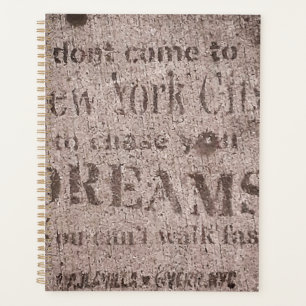 dont come to
ew York City
to chase your
DREAMS
ou can't walk fas